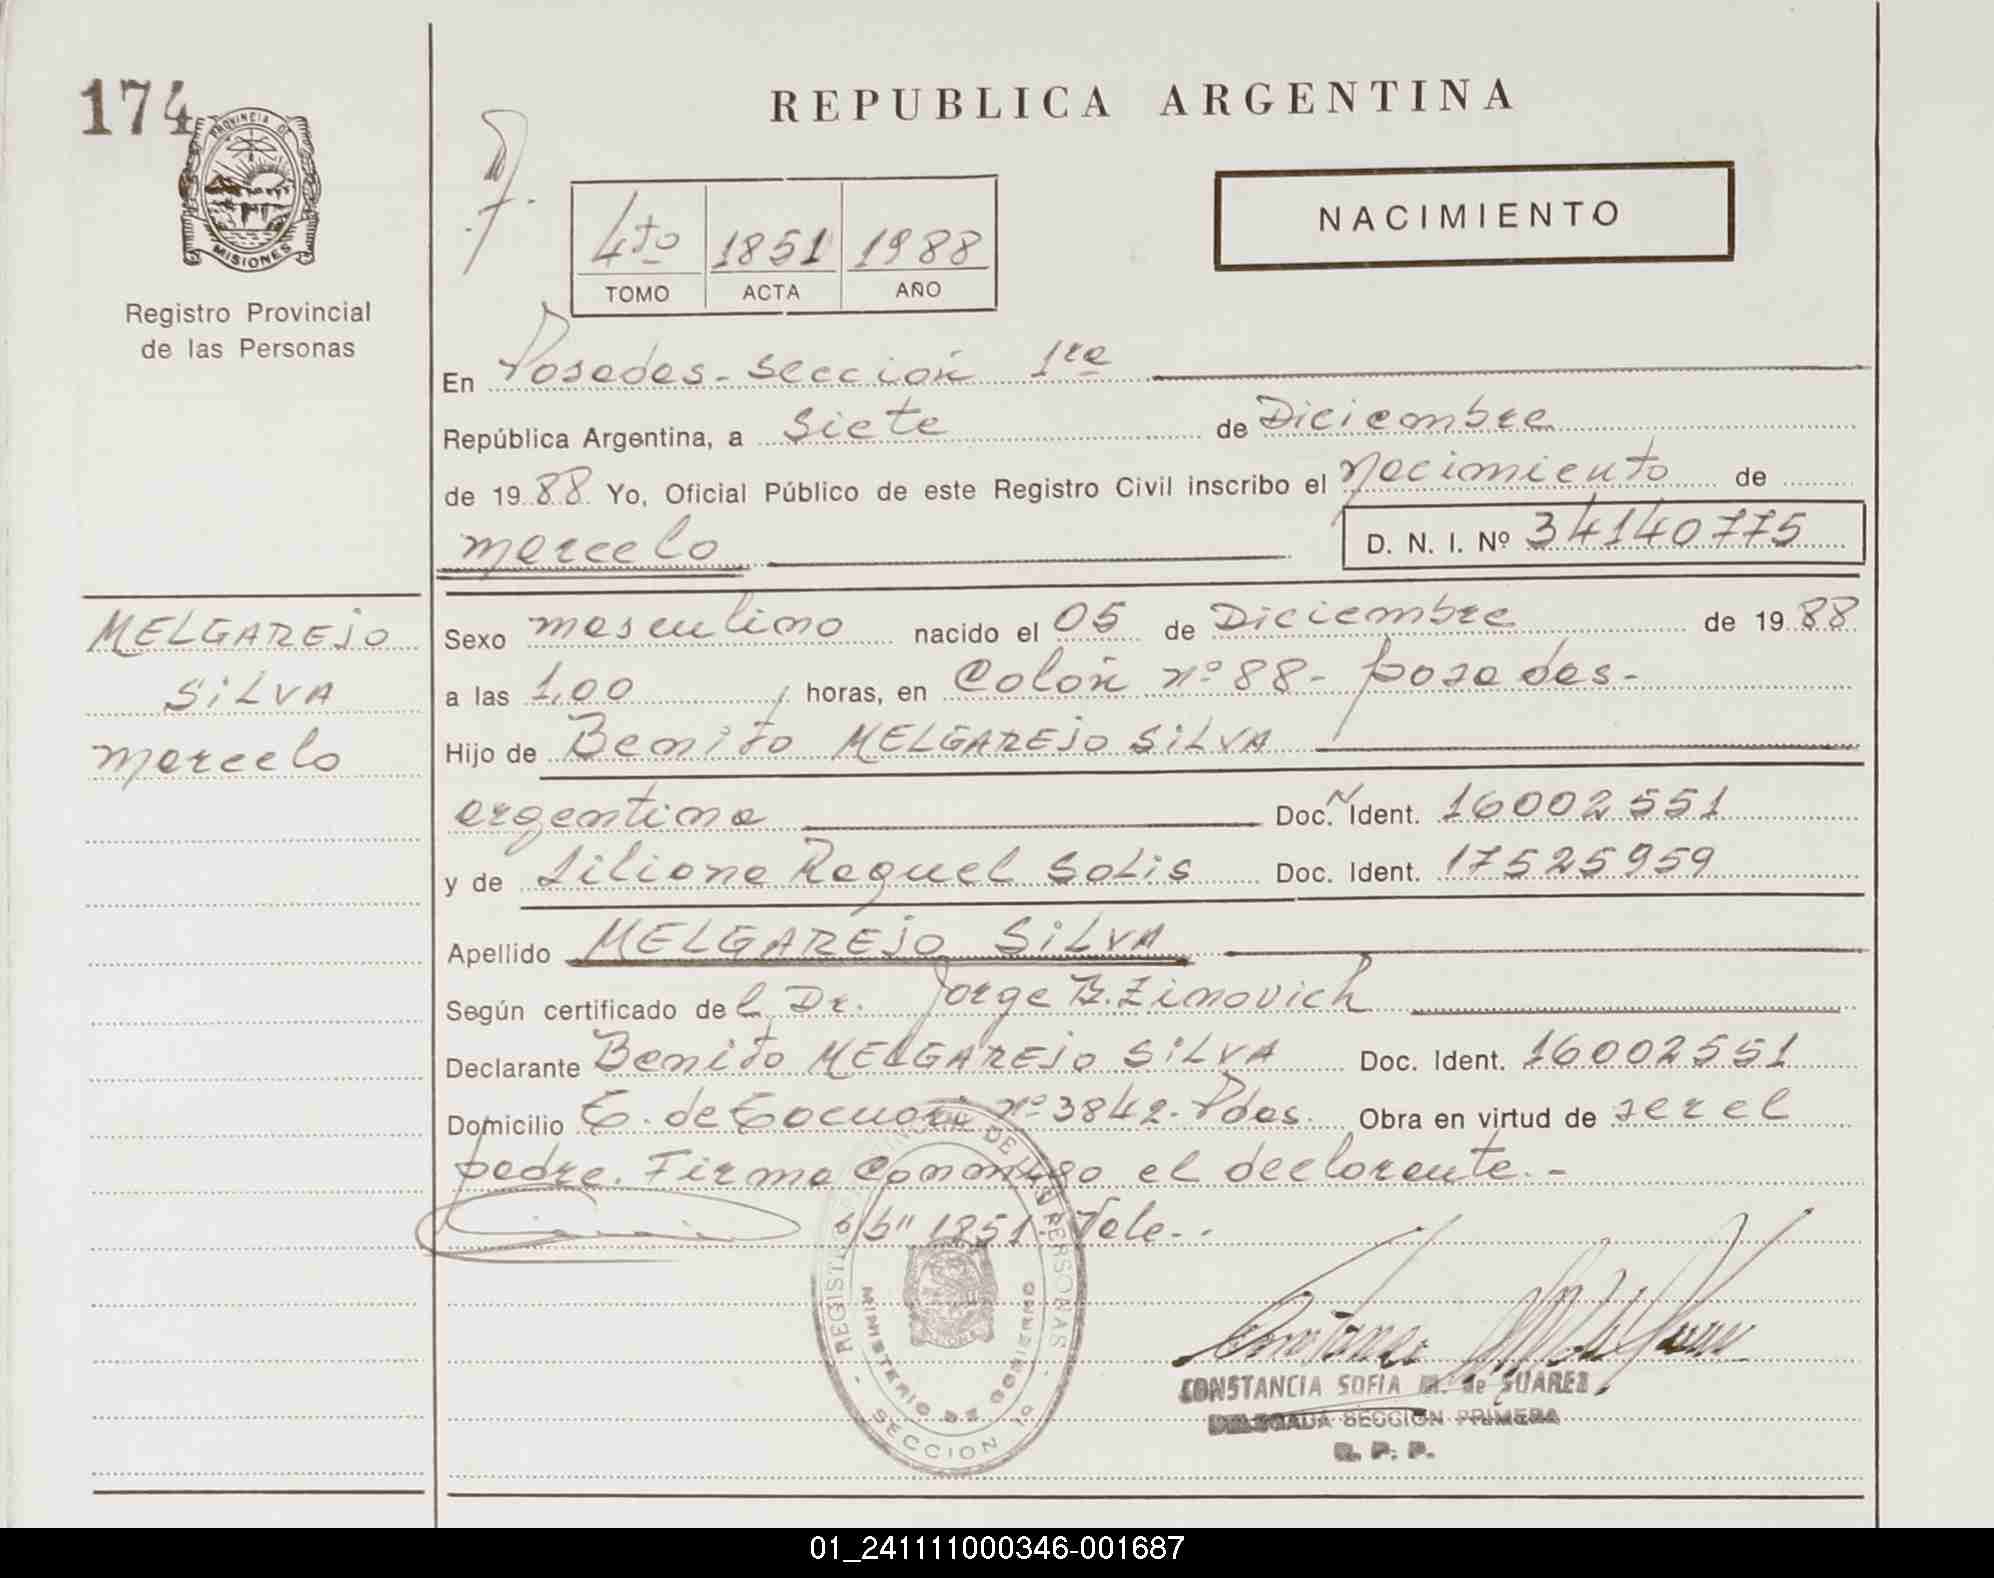 174
PROVINCIA DE
MISIONES
Registro Provincial
de las Personas
REPUBLICA ARGENTINA
NACIMIENTO
4to 1851 1988
TOMO ACTA AÑO
En Posadas - Sección 1ra
República Argentina, a Siete de Diciembre
de 1988 Yo, Oficial Público de este Registro Civil inscribo el Nacimiento de
Marcelo D. N. I. Nº 34140775
MELGAREJO
SILVA
Marcelo
Sexo masculino nacido el 05 de Diciembre de 1988
a las 1,00 horas, en Colón nº 88 - posadas -
Hijo de Benito MELGAREJO SILVA
argentino Doc. N Ident. 16002551
y de Liliana Raquel SOLIS Doc. Ident. 17525959
Apellido MELGAREJO SILVA
Según certificado del Dr. Jorge B. Zimovich
Declarante Benito MELGAREJO SILVA Doc. Ident. 16002551
Domicilio nº 3842. Pdas. Obra en virtud de ser el
padre. Firma conmigo el declarante. -
s/b" 1851" Vale. -
MINISTERIO DE GOBIERNO
SECCION 1º
CONSTANCIA SOFIA M. de SUAREZ
DELEGADA SECCION PRIMERA
R. P. P.
01_241111000346-001687